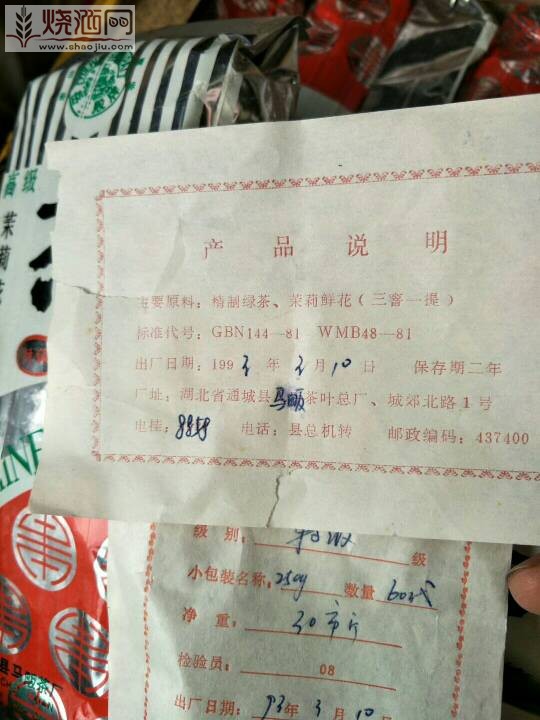 烧酒网
www.shaojiu.com
高级
茉莉花
产品说明
主要原料：精制绿茶、茉莉鲜花（三窨一提）
标准代号：GBN144—81 WMB48—81
出厂日期：1993年3月10日 保存期二年
厂址：湖北省通城县马畈茶叶总厂、城郊北路1号
电挂： 电话：县总机转 邮政编码：437400
级别：特级 级
小包装名称：250g 数量：60袋
净重：30市斤
检验员：08
出厂日期：93年3月10日
县马畈茶厂